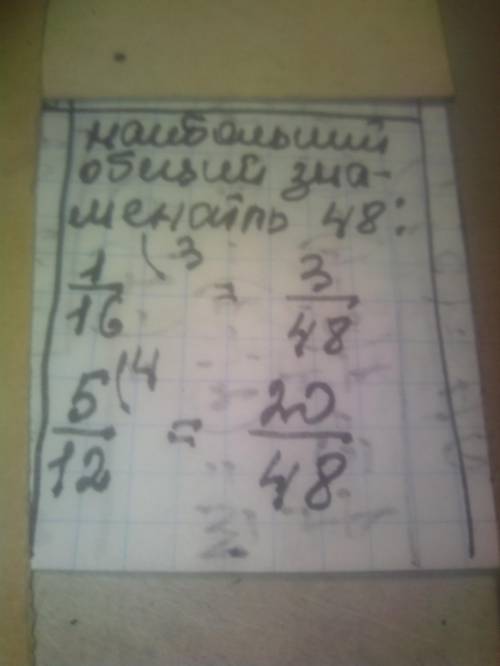 наибольший
общий зна-
менайть 48:
1/16 (3 = 3/48
5/12 (4 = 20/48